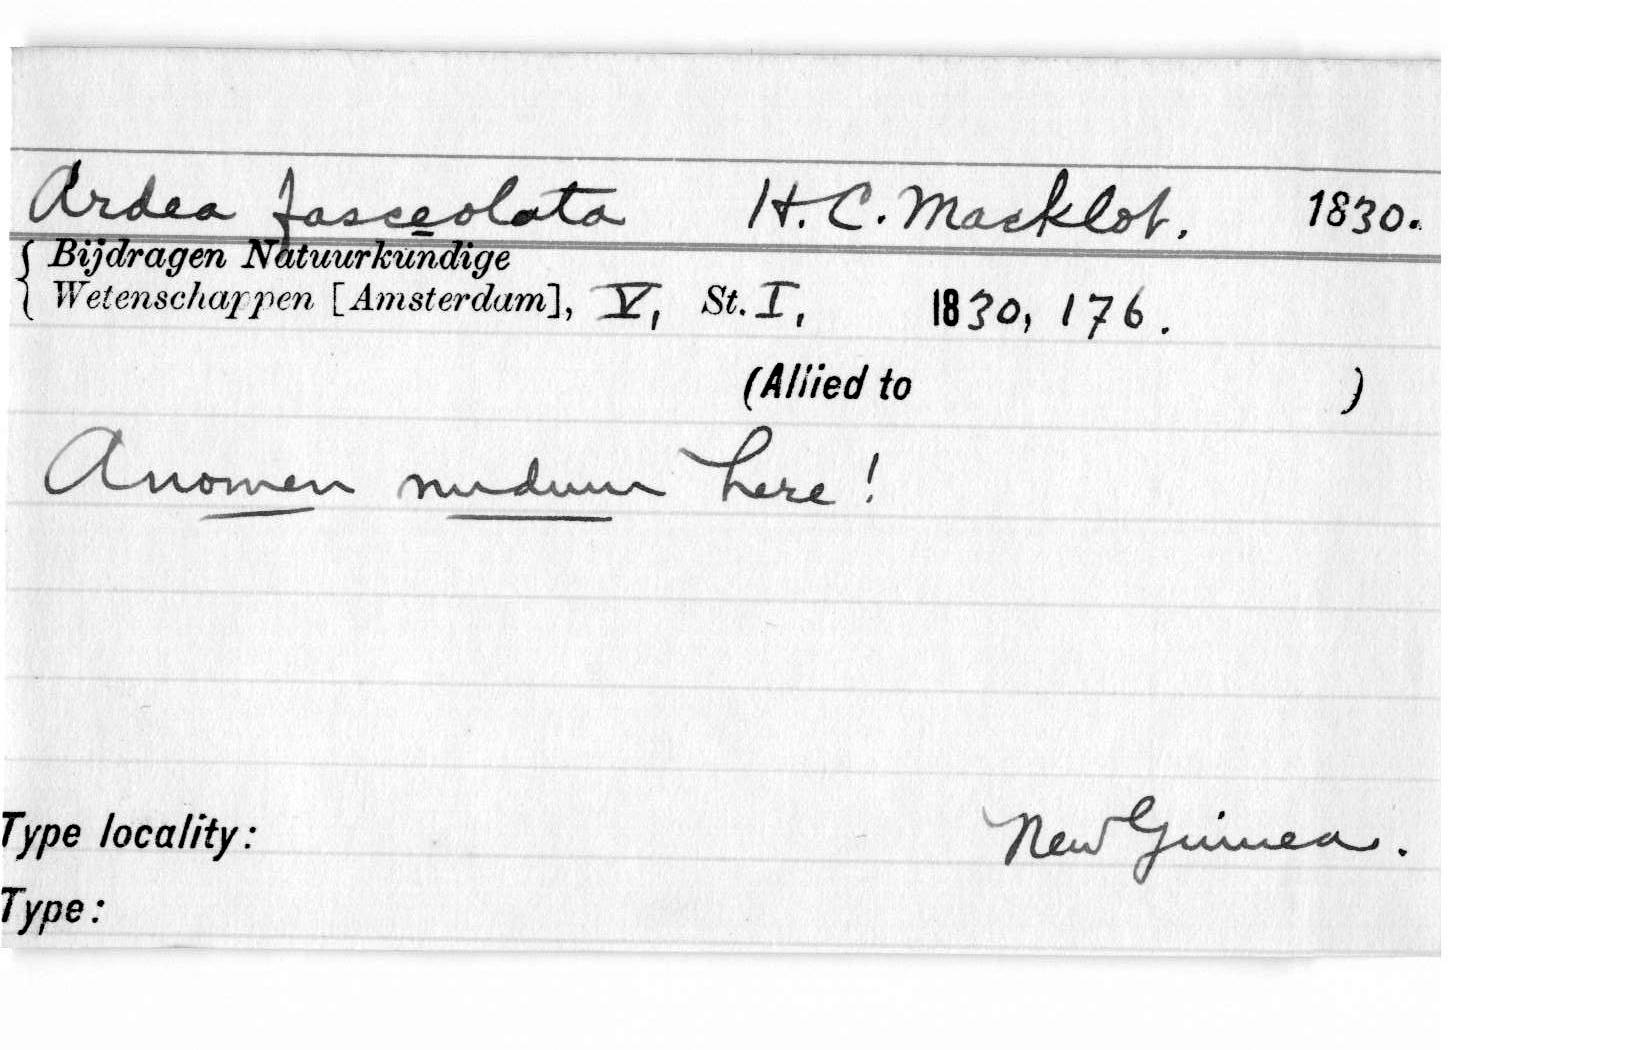 Ardea fasceolata H. C. Macklot. 1830.
Bijdragen Natuurkundige
Wetenschappen [Amsterdam], V, St. I, 1830, 176.
(Allied to )
A nomen nudum here!
Type locality: New Guinea.
Type: